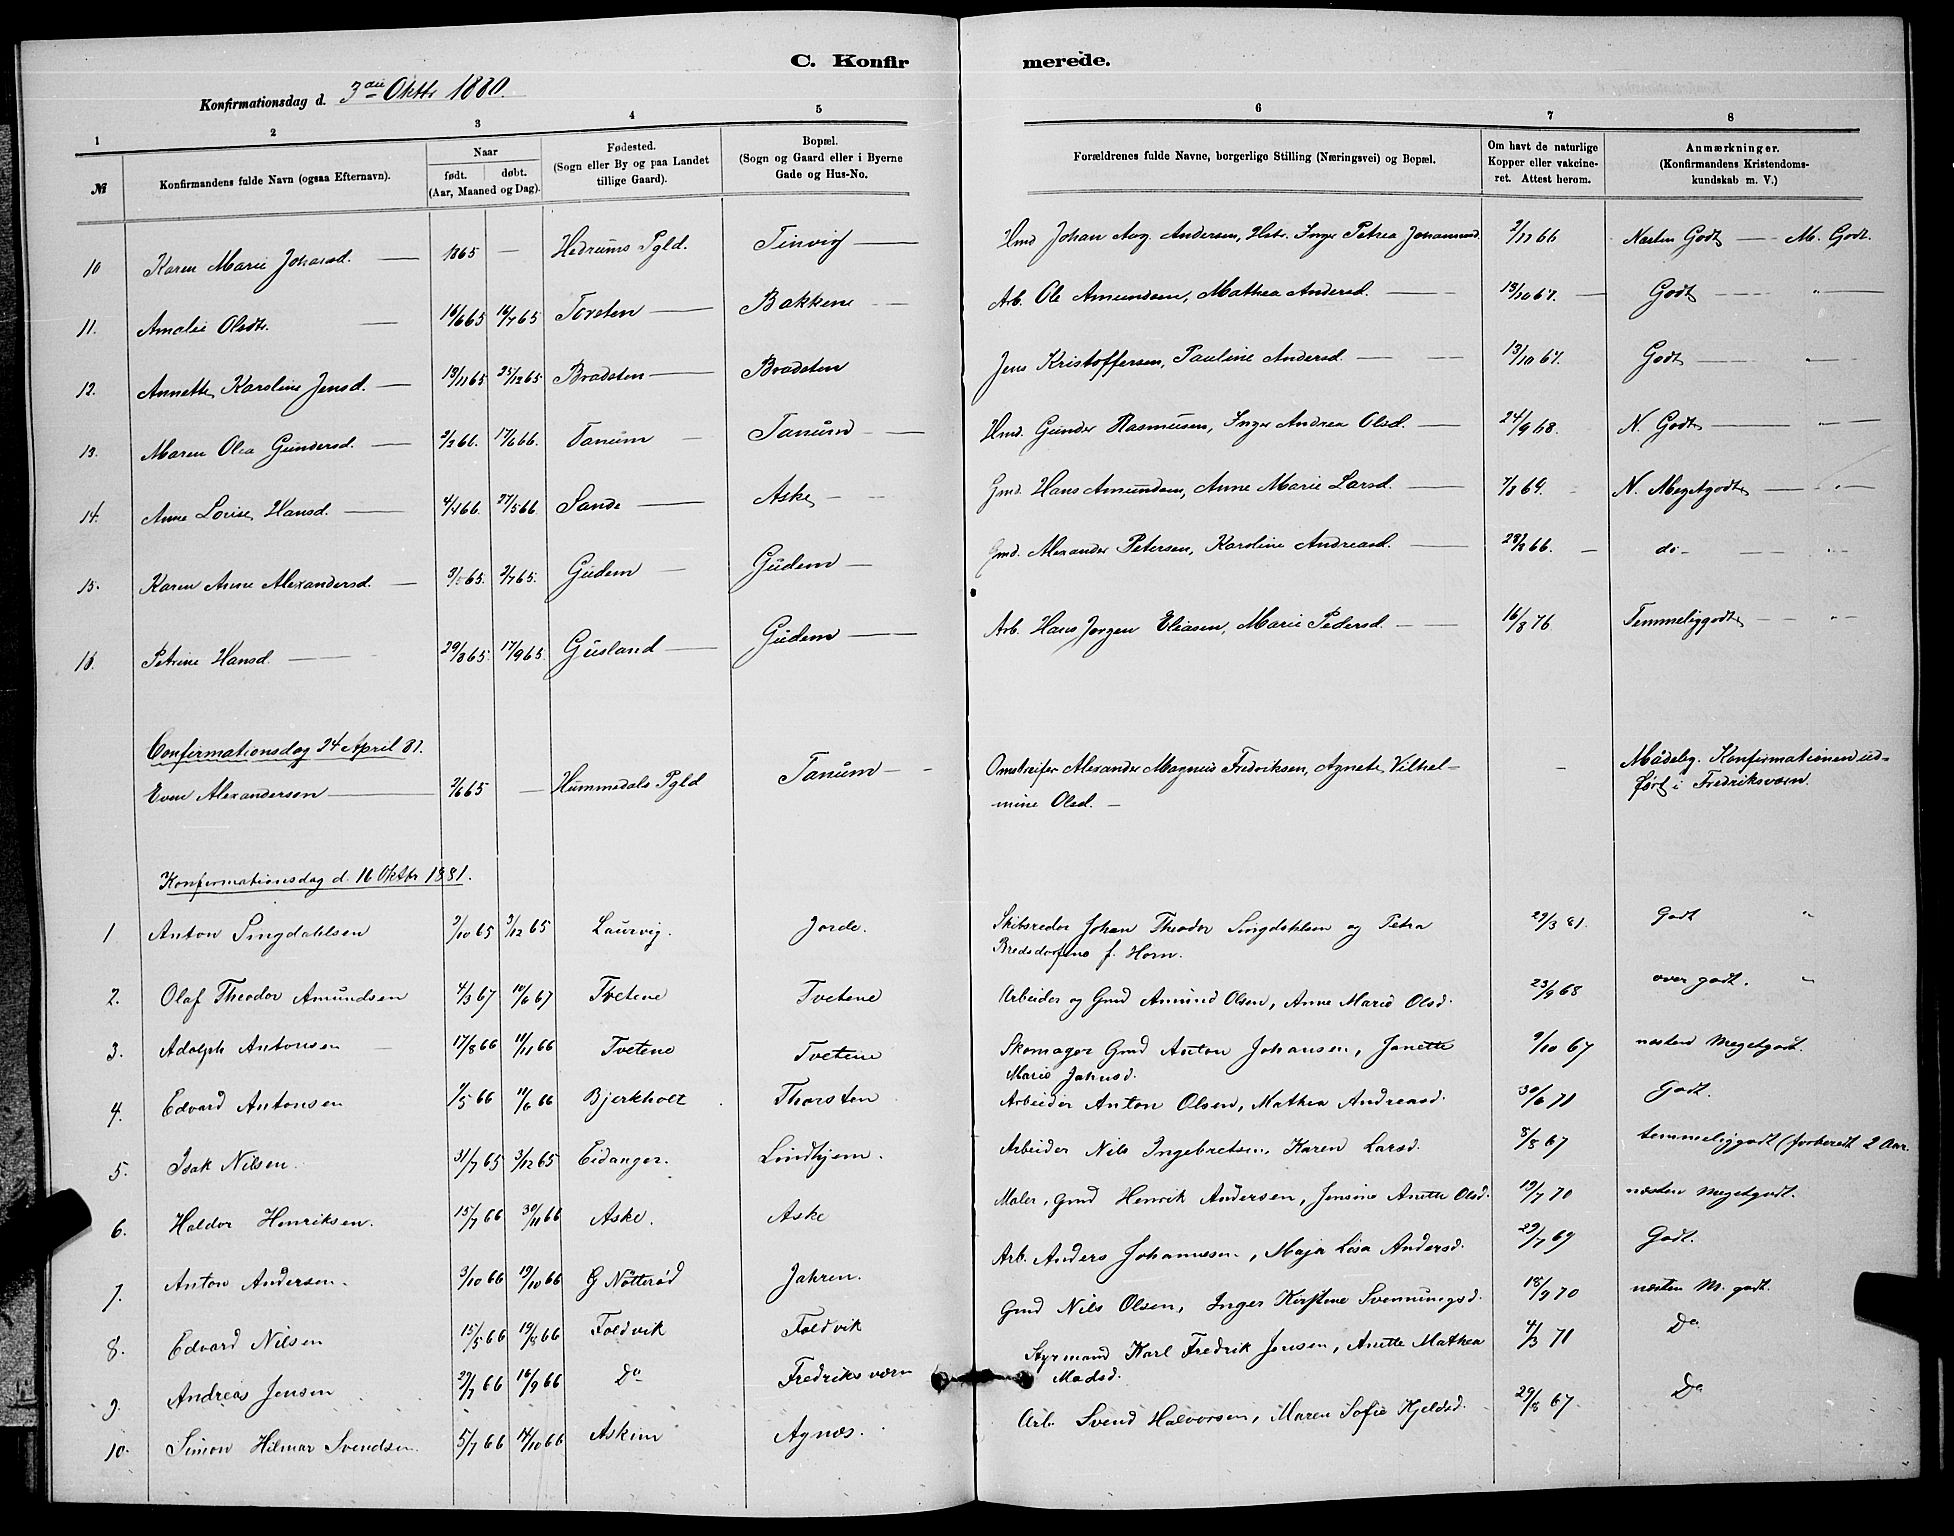 C. Konfirmerede.
Konfirmationsdag d. 3die Oktbr 1880.
1 2 3 4 5 6 7 8
№
Konfirmandens fulde Navn (ogsaa Efternavn).
Naar
født. døbt.
(Aar, Maaned og Dag).
Fødested.
(Sogn eller By og paa Landet
tillige Gaard).
Bopæl.
(Sogn og Gaard eller i Byerne
Gade og Hus-No.
Forældrenes fulde Navne, borgerlige Stilling (Næringsvei) og Bopæl.
Om havt de naturlige
Kopper eller vakcine-
ret. Attest herom.
Anmærkninger.
(Konfirmandens Kristendoms-
kundskab m. V.)
10 Karen Marie Johansd. — 1865 — Hedrums Pgld. Tinvig — Hmd Johan Aug. Andersen, Inger Petrea 2/11 66 Næsten Godt — M. Godt.
11. Amalie Olsdtr. — 16/6 65 16/7 65 Torsten — Bakkene — Arb. Ole Amundsen, Mathea Andersd. — 13/10 67. — Godt — „ —
12. Annette Karoline Jensd. — 13/11 65 25/12 65 Bradsten — Bradsten Jens Kristoffersen, Pauline Andersd. — 13/10 67. Godt — „
13. Maren Olea Gundersd. — 2/2 66. 17/6 66. Tanum — Tanum — Hmd. Gunder Rasmusen, Inger Andrea Olsd. — 24/9 68. N. Godt — „ —
14. Anne Lovise Hansd. — 4/4 66. 27/5 66. Sande — Aske — Gmd. Hans Amundsen, Anne Marie Larsd. — 64. N. Megetgodt — „ —
15. Karen Anne Alexandersd. — 65. 2/7 65. Gudem — Gudem — Gmd. Alexander Petersen, Karoline Andreasd. — 66. — do — „
16. Petrine Hansd. — 29/8 65. 17/9 65. Gusland — Gudem — Arb. Hans Jørgen Eliasen, Marie Pedersd. — 16/8 76 Temmeliggodt — „
Confirmationsdag 24 April 81.
Even Alexandersen — 2/6 65 — Hummedals Pgld Tanum — Omstreifer Alexander Magnus Fredriksen, Agnete Vilhel- — Mådelig. Konfirmationen ud-
mine Olsd. — ført i Fredriksværn.
Konfirmationsdag d. 16 Oktbr 1881.
1 Anton Singdahlsen 2/10 65 3/12 65 Laurvig. Jorde. Skibsreder Johan Theodor Singdahlsen og Petra 29/3 81. Godt „
Bredsdorfine f. Horn.
2. Olaf Theodor Amundsen 4/3 67 10/6 67 Tvetene Tvetene Arbeider og Gmd Amund Olsen, Anne Marie Olsd. 23/9 68 over godt. „
3. Adolph Antonsen 17/8 66 11/11 66 Tvetene Tvetene Skomager Gmd Anton Johansen, Janette 9/10 67 næsten Megetgodt.
Marie Jahnsd.
4. Edvard Antonsen 1/5 66 11/6 66 Bjerkholt Thorsten Arbeider Anton Olsen, Mathea Andreasd. 30/6 71 Godt.
5. Isak Nilsen. 31/7 65 3/12 65 Eidanger. Lindhjem. Arbeider Nils Ingebretsen, Karen Larsd. 8/8 67 temmeliggodt (forberedt 2 Aar.
6. Haldor Henriksen. 15/7 66 30/11 66 Aske. Aske Maler, Gmd Henrik Andersen, Jensine Anette Olsd. 19/7 70 næsten Megetgodt.
7. Anton Andersen. 3/10 66 19/10 66 G Nøtterød Jahren. Arb. Anders Johannesen, Maja Lisa Andersd. 29/7 69 Godt.
8. Edvard Nilsen 15/5 66 19/8 66 Foldvik Foldvik Gmd Nils Olsen, Inger Kirstine Svenningsd. 18/9 70 næsten M. godt.
9. Andreas Jensen 27/7 66 16/9 66 Do Fredriksværn Styrmand Karl Fredrik Jensen, Anette Mathea 4/3 71 Do
Madsd.
10. Simon Hilmar Svendsen 5/7 66 14/10 66 Askim Agnæs. Arb. Svend Halvorsen, Maren Sofie Kjeldsd. 29/8 67 Do